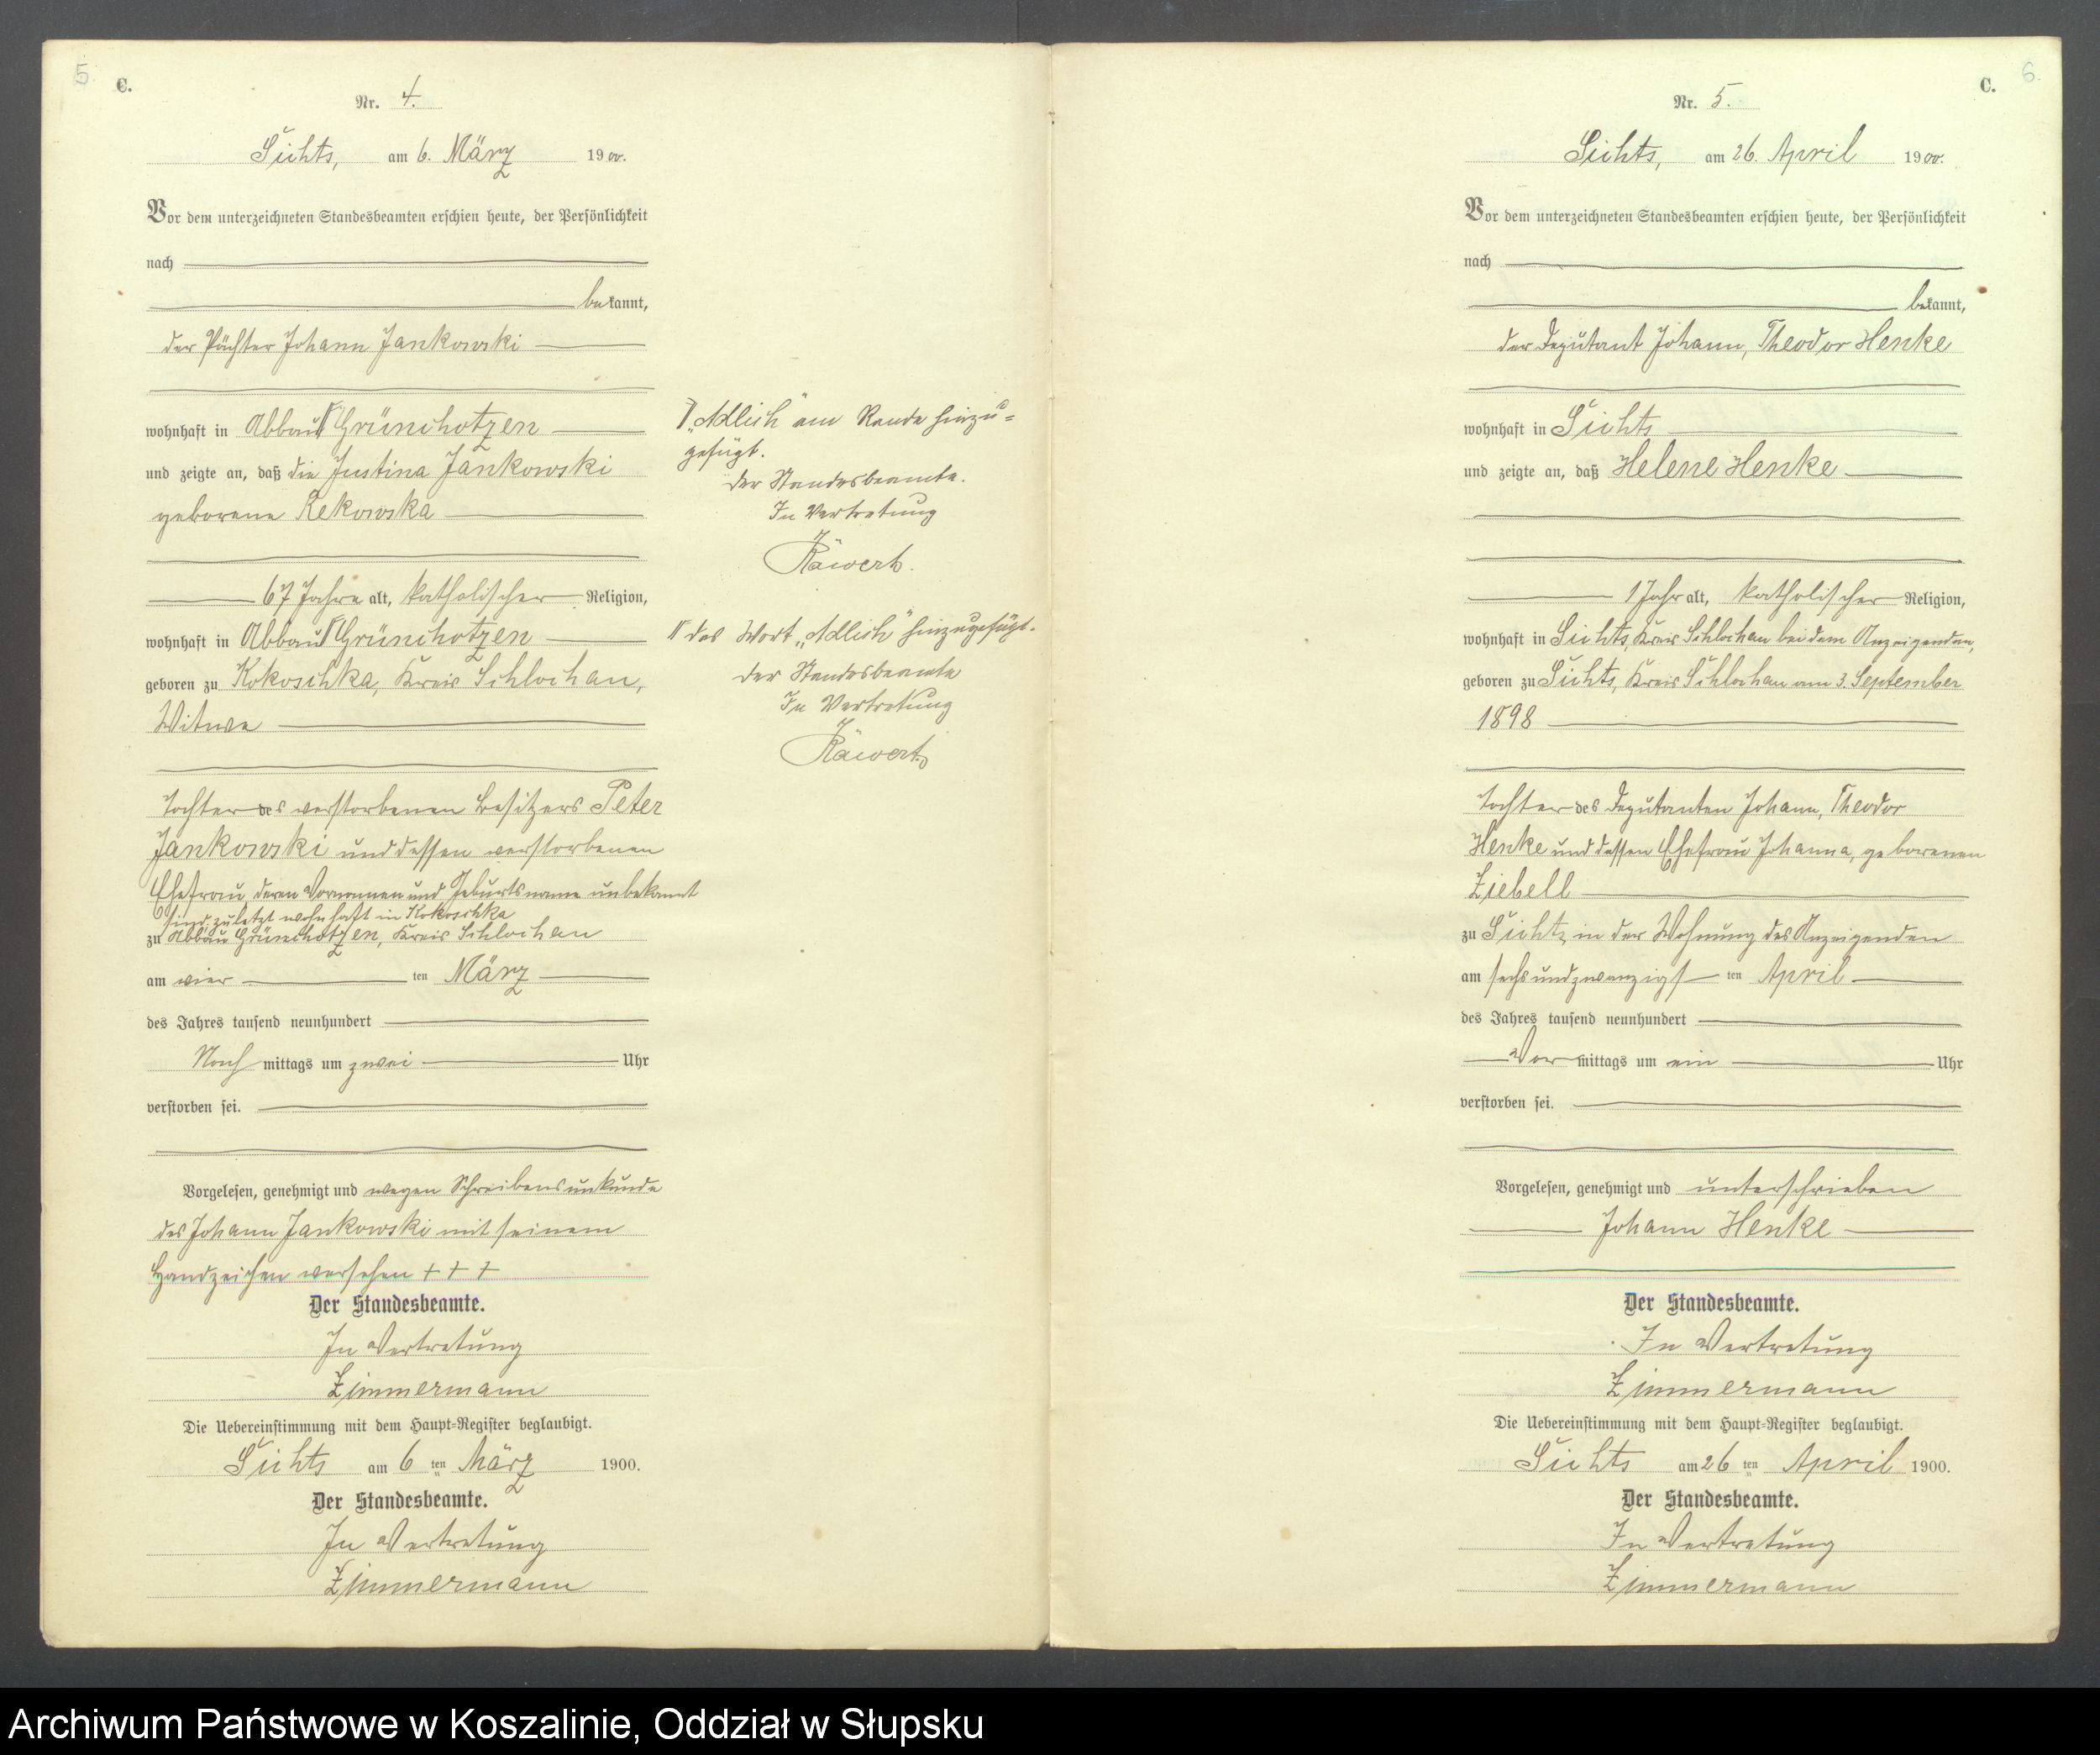 5.
C.
Nr. 4.
Sichts, am 6. März 1900.
Vor dem unterzeichneten Standesbeamten erschien heute, der Persönlichkeit
nach
bekannt,
der Pächter Johann Jankowski
wohnhaft in Abbau Grünchotzen
und zeigte an, daß die Justina Jankowski
geborene Rekowska
67 Jahre alt, katholischer Religion,
wohnhaft in Abbau Grünchotzen
geboren zu Kokoschka, Kreis Schlochau,
Witwe
Tochter des verstorbenen Besitzers Peter
Jankowski und dessen verstorbenen
Ehefrau, deren Vornamen und Geburtsname unbekannt
sind, zuletzt wohnhaft in Kokoschka
zu Abbau Grünchotzen, Kreis Schlochau
am vier ten März
des Jahres tausend neunhundert
Nach mittags um zwei Uhr
verstorben sei.
Vorgelesen, genehmigt und wegen Schreibensunkunde
des Johann Jankowski mit seinem
Handzeichen versehen + + +
Der Standesbeamte.
In Vertretung
Zimmermann
Die Uebereinstimmung mit dem Haupt-Register beglaubigt.
Sichts am 6 ten März 1900.
Der Standesbeamte.
In Vertretung
Zimmermann
"Adlich" am Rande hinzu=
gefügt.
Der Standesbeamte.
In Vertretung
Käwert.
das Wort „Adlich" hinzugefügt.
Der Standesbeamte
In Vertretung
Käwert.
6.
C.
Nr. 5.
Sichts, am 26. April 1900.
Vor dem unterzeichneten Standesbeamten erschien heute, der Persönlichkeit
nach
bekannt,
der Deputant Johann, Theodor Henke
wohnhaft in Sichts
und zeigte an, daß Helene Henke
1 Jahr alt, katholischer Religion,
wohnhaft in Sichts, Kreis Schlochau bei dem Anzeigenden,
geboren zu Sichts, Kreis Schlochau am 3. September
1898
Tochter des Deputanten Johann, Theodor
Henke und dessen Ehefrau Johanna, geborenen
Ziebell
zu Sichts, in der Wohnung des Anzeigenden
am sechsundzwanzigs ten April
des Jahres tausend neunhundert
Vor mittags um ein Uhr
verstorben sei.
Vorgelesen, genehmigt und unterschrieben
Johann Henke
Der Standesbeamte.
In Vertretung
Zimmermann
Die Uebereinstimmung mit dem Haupt-Register beglaubigt.
Sichts am 26 ten April 1900.
Der Standesbeamte.
In Vertretung
Zimmermann
Archiwum Państwowe w Koszalinie, Oddział w Słupsku